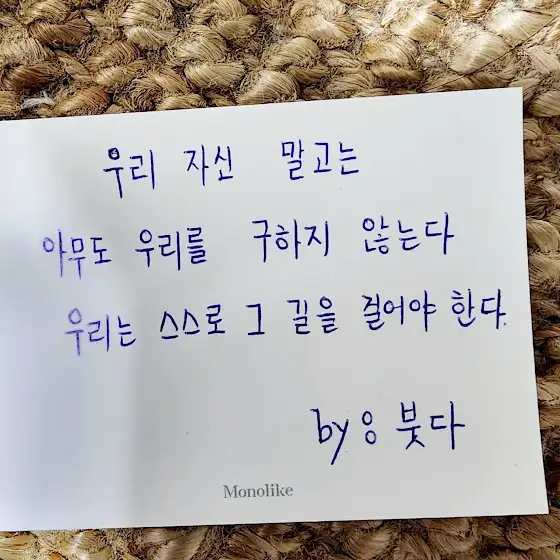 우리 자신 말고는
아무도 우리를 구하지 않는다
우리는 스스로 그 길을 걸어야 한다.
by 붓다
Monolike